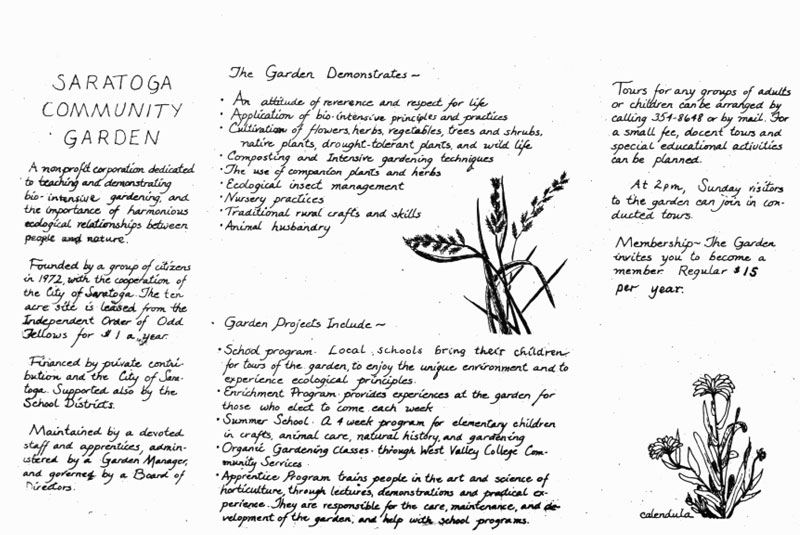 SARATOGA
COMMUNITY
GARDEN
A nonprofit corporation dedicated
to teaching and demonstrating
bio-intensive gardening, and
the importance of harmonious
ecological relationships between
people and nature.
Founded by a group of citizens
in 1972, with the cooperation of
the City of Saratoga. The ten
acre site is leased from the
Independent Order of Odd
Fellows for $1 a year.
Financed by private contri-
bution and the City of Sara-
toga. Supported also by the
School Districts.
Maintained by a devoted
staff and apprentices, admin-
istered by a Garden Manager,
and governed by a Board of
Directors.
The Garden Demonstrates~
• An attitude of reverence and respect for life
• Application of bio-intensive principles and practices
• Cultivation of flowers, herbs, vegetables, trees and shrubs,
native plants, drought-tolerant plants, and wild life
• Composting and Intensive gardening techniques
• The use of companion plants and herbs
• Ecological insect management
• Nursery practices
• Traditional rural crafts and skills
• Animal husbandry
Garden Projects Include~
• School program. Local schools bring their children
for tours of the garden, to enjoy the unique environment and to
experience ecological principles.
• Enrichment Program provides experiences at the garden for
those who elect to come each week
• Summer School. A 4 week program for elementary children
in crafts, animal care, natural history, and gardening
• Organic Gardening Classes. through West Valley College Com-
munity Services.
• Apprentice Program trains people in the art and science of
horticulture, through lectures, demonstrations and practical ex-
perience. They are responsible for the care, maintenance, and de-
velopment of the garden, and help with school programs.
Tours for any groups of adults
or children can be arranged by
calling 354-8648 or by mail. For
a small fee, docent tours and
special educational activities
can be planned.
At 2pm, Sunday visitors
to the garden can join in con-
ducted tours.
Membership~ The Garden
invites you to become a
member. Regular $15
per year.
calendula